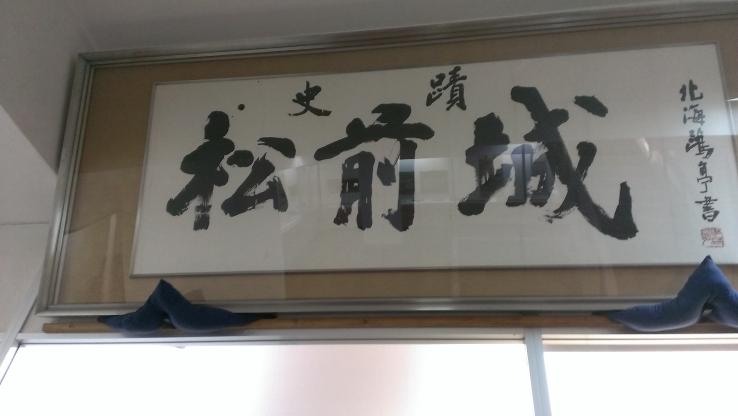 史蹟
松前城
北海鵬亭書